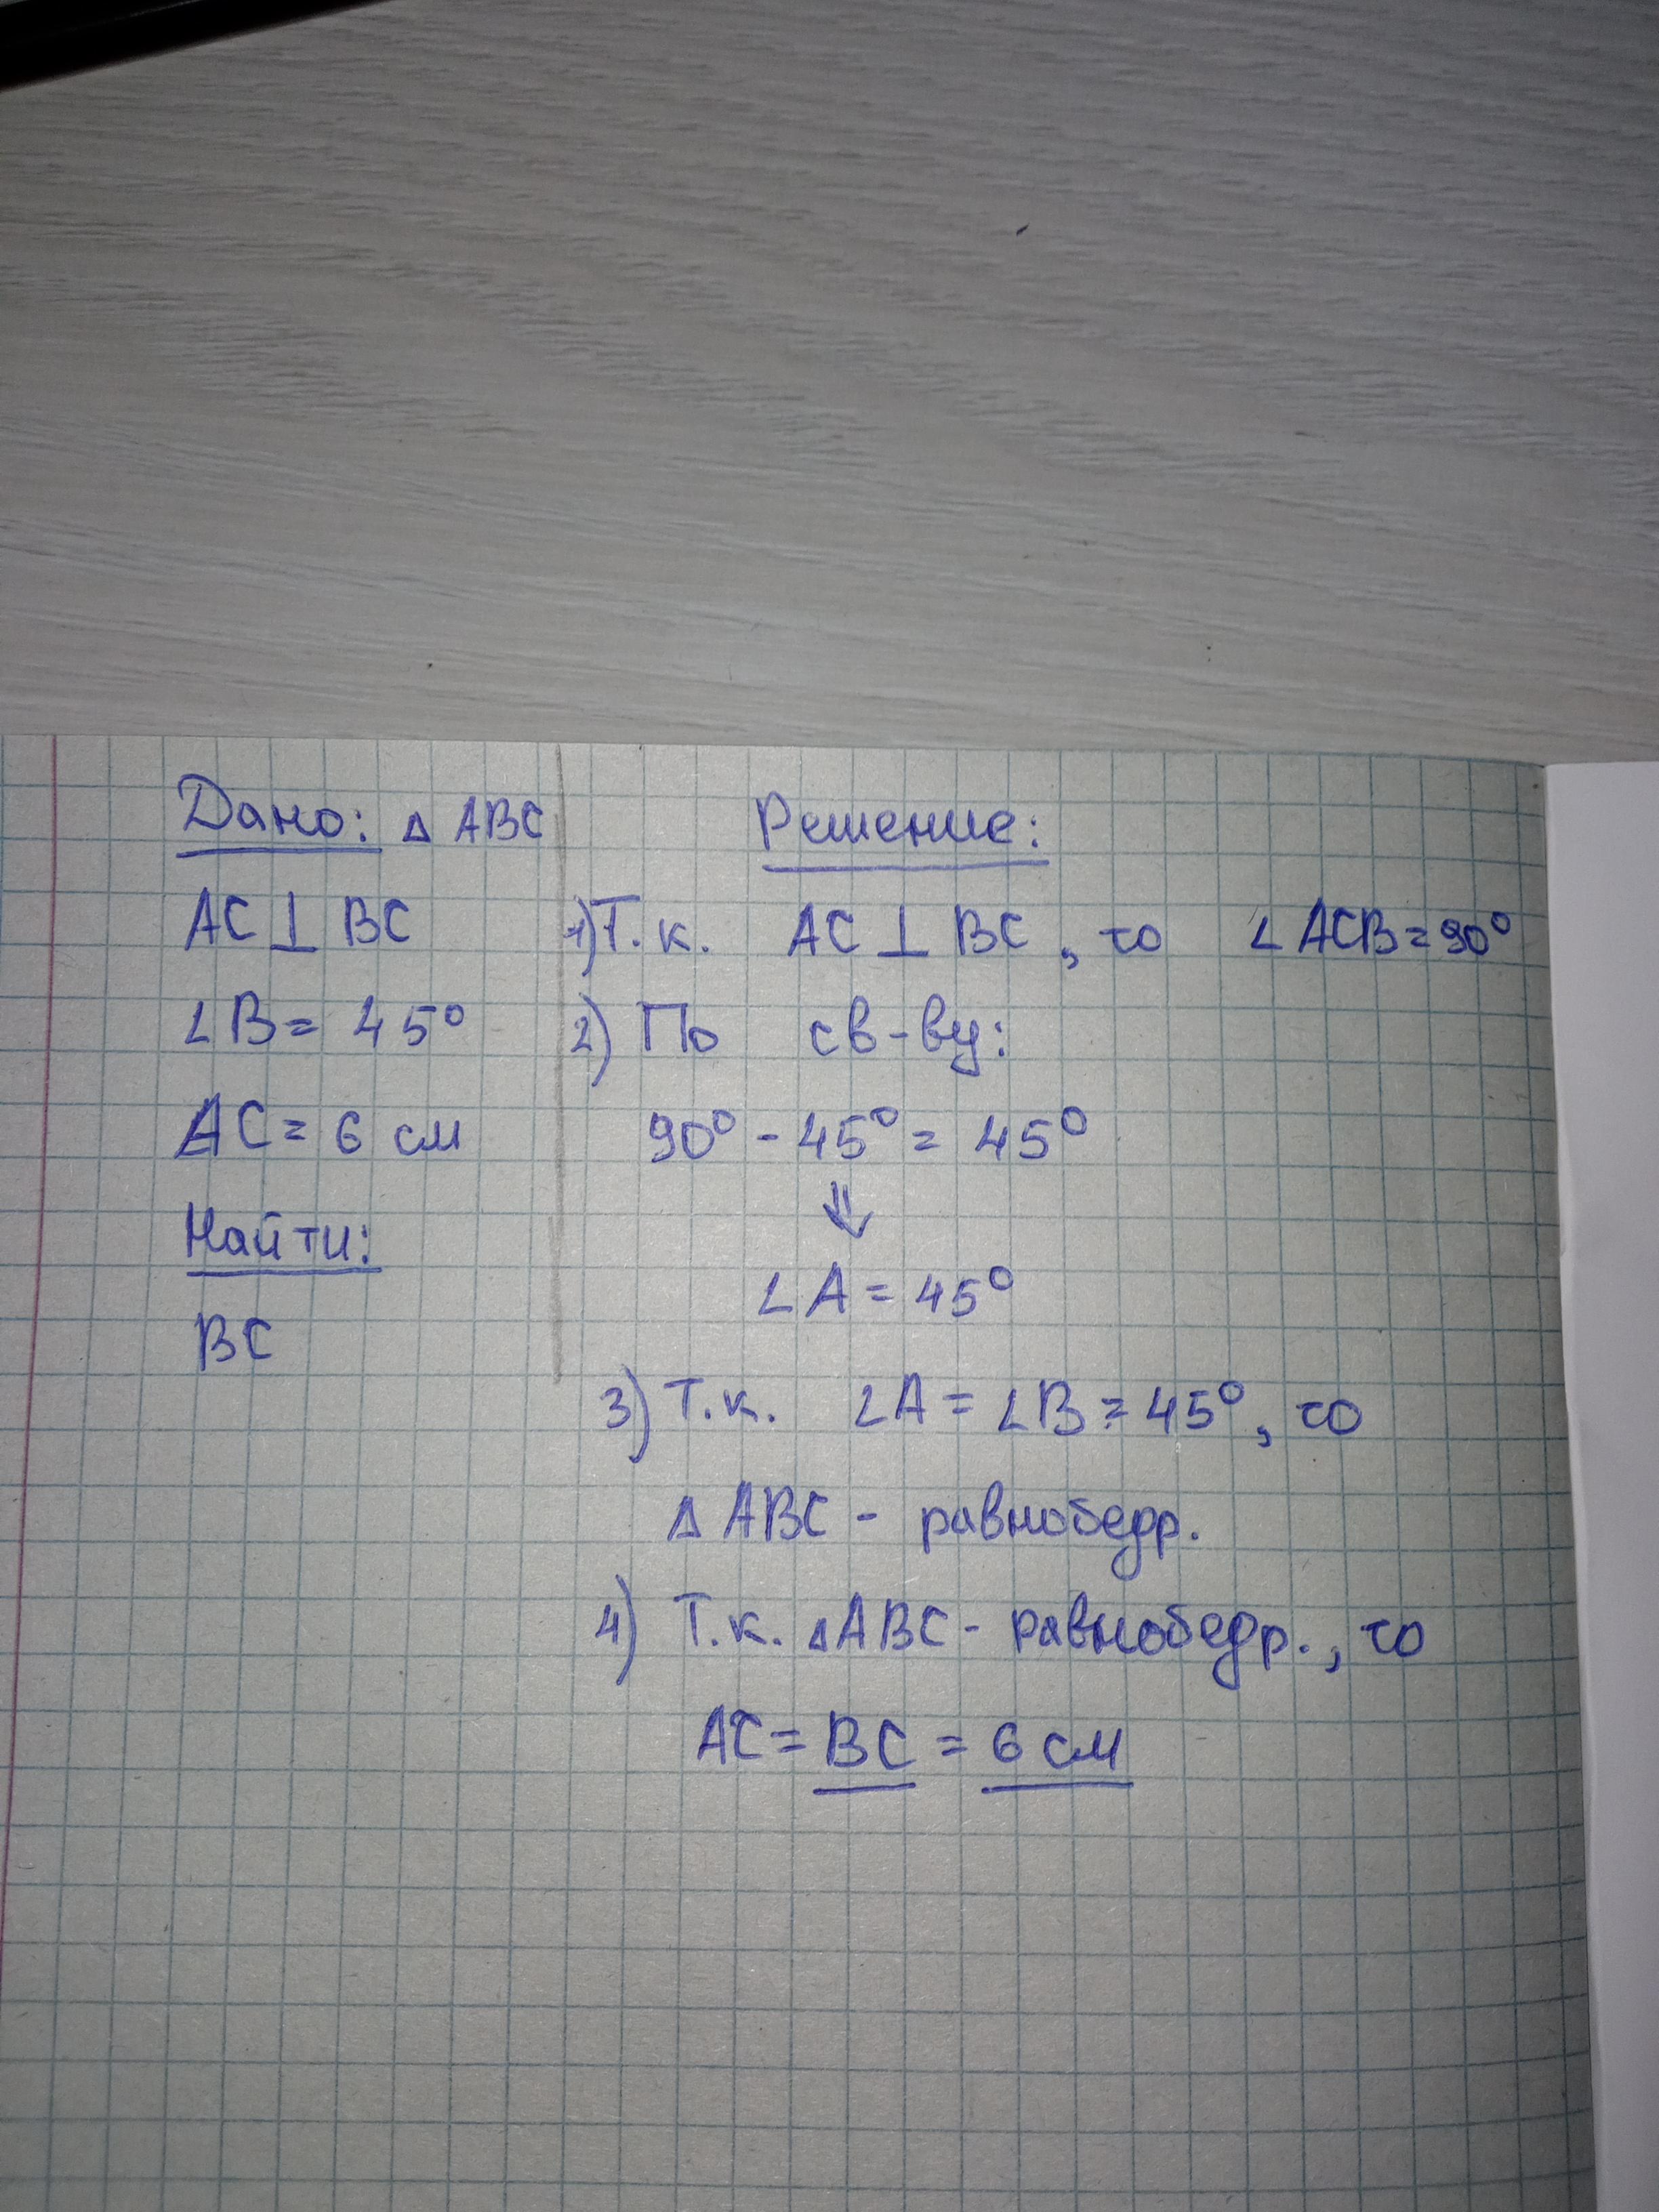 Дано: Δ ABC
AC ⊥ BC
∠B = 45°
AC = 6 см
Найти:
BC
Решение:
1) Т.к. AC ⊥ BC, то ∠ACB = 90°
2) По св-ву:
90° - 45° = 45°
⇓
∠A = 45°
3) Т.к. ∠A = ∠B = 45°, то
Δ ABC - равнобедр.
4) Т.к. Δ ABC - равнобедр., то
AC = BC = 6 см